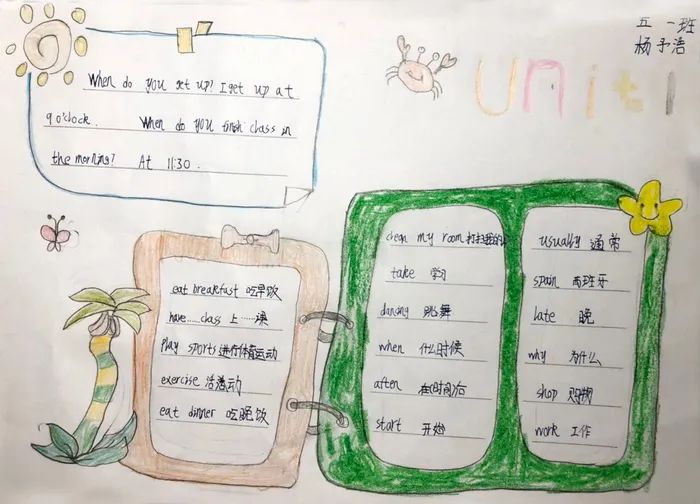 五 一班
杨予浩
Unit1
When do you get up? I get up at
9 o'clock. When do you finish class in
the morning? At 11:30.
eat breakfast 吃早饭
have......class 上……课
play sports 进行体育运动
exercise 活动
eat dinner 吃晚饭
clean my room 打扫我的
take 学习
dancing 跳舞
when 什么时候
after 在(时间)后
start 开始
usually 通常
spain 西班牙
late 晚
why 为什么
shop 购物
work 工作